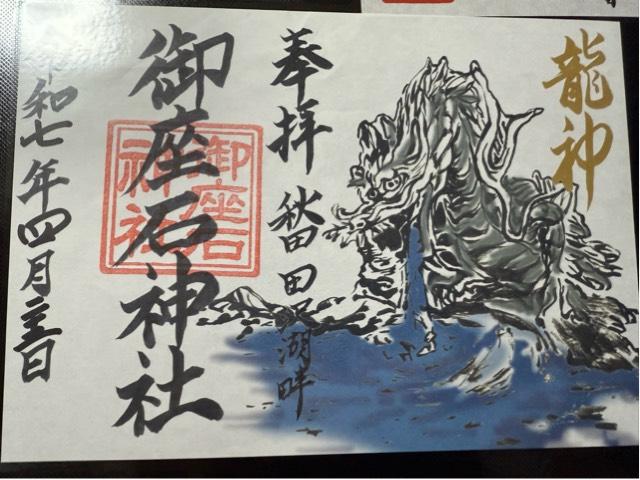 龍神
奉拝 秋田 湖畔
御座石神社
御座石
神社
和七年四月二十三日